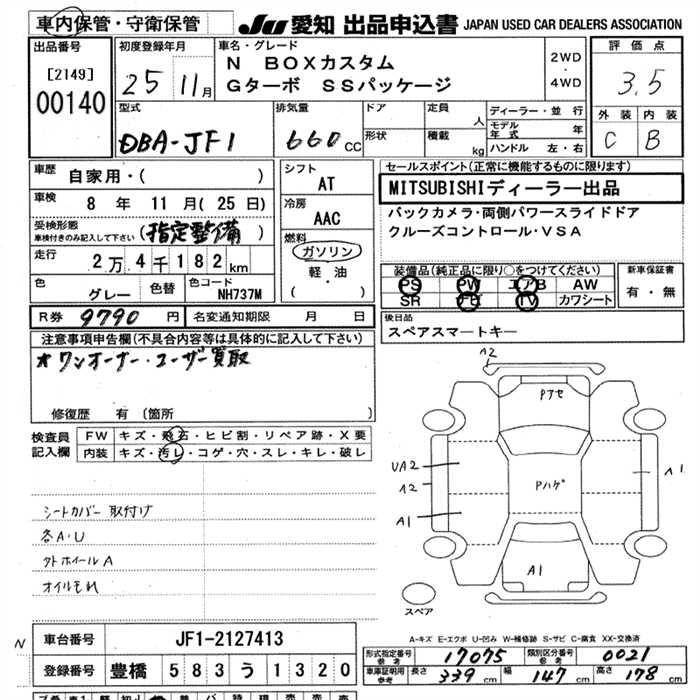 車内保管・守衛保管 JU 愛知 出品申込書 JAPAN USED CAR DEALERS ASSOCIATION
出品番号 [2149] 00140
初度登録年月 25 11月
車名・グレード
N BOXカスタム
Gターボ SSパッケージ
2WD・4WD
評価点 3.5
外装 内装
C B
型式 DBA-JF1
排気量 660CC
ドア 定員 人
形状 積載 kg
ディーラー・並行
モデル年式 年
ハンドル 左・右
車歴 自家用・( )
車検 8年 11月(25日)
受検形態 車検付きのみ記入して下さい (指定整備)
走行 2万4千182km
色 グレー 色替 色コード NH737M
シフト AT
冷房 AAC
燃料 ガソリン
軽・油
( )
セールスポイント(正常に機能するものに限ります)
MITSUBISHIディーラー出品
バックカメラ・両側パワースライドドア
クルーズコントロール・VSA
装備品(純正品に限り○をつけてください)
PS PW エアB AW
SR ナビ TV カワシート
新車保証書
有・無
R券 9790円 名変通知期限 月 日
後日品
スペアスマートキー
注意事項申告欄(不具合内容等は具体的に記入して下さい)
*ワンオーナー・ユーザー買取
修復歴 有(箇所 )
検査員記入欄
FW キズ・飛石・ヒビ割・リペア跡・X要
内装 キズ・汚レ・コゲ・穴・スレ・キレ・破レ
シートカバー取付け
各A・U
タトホイールA
オイルもれ
A2
Pアセ
UA2
A2
A1
Pハゲ
A1
A1
スペア
A-キズ E-エクボ U-凹み W-補修跡 S-サビ C-腐食 XX-交換済
N
車台番号 JF1-2127413
登録番号 豊橋 583う1320
形式指定番号 参考 17075 類別区分番号 参考 0021
車庫証明用 参考 長さ 339cm 幅 147cm 高さ 178cm